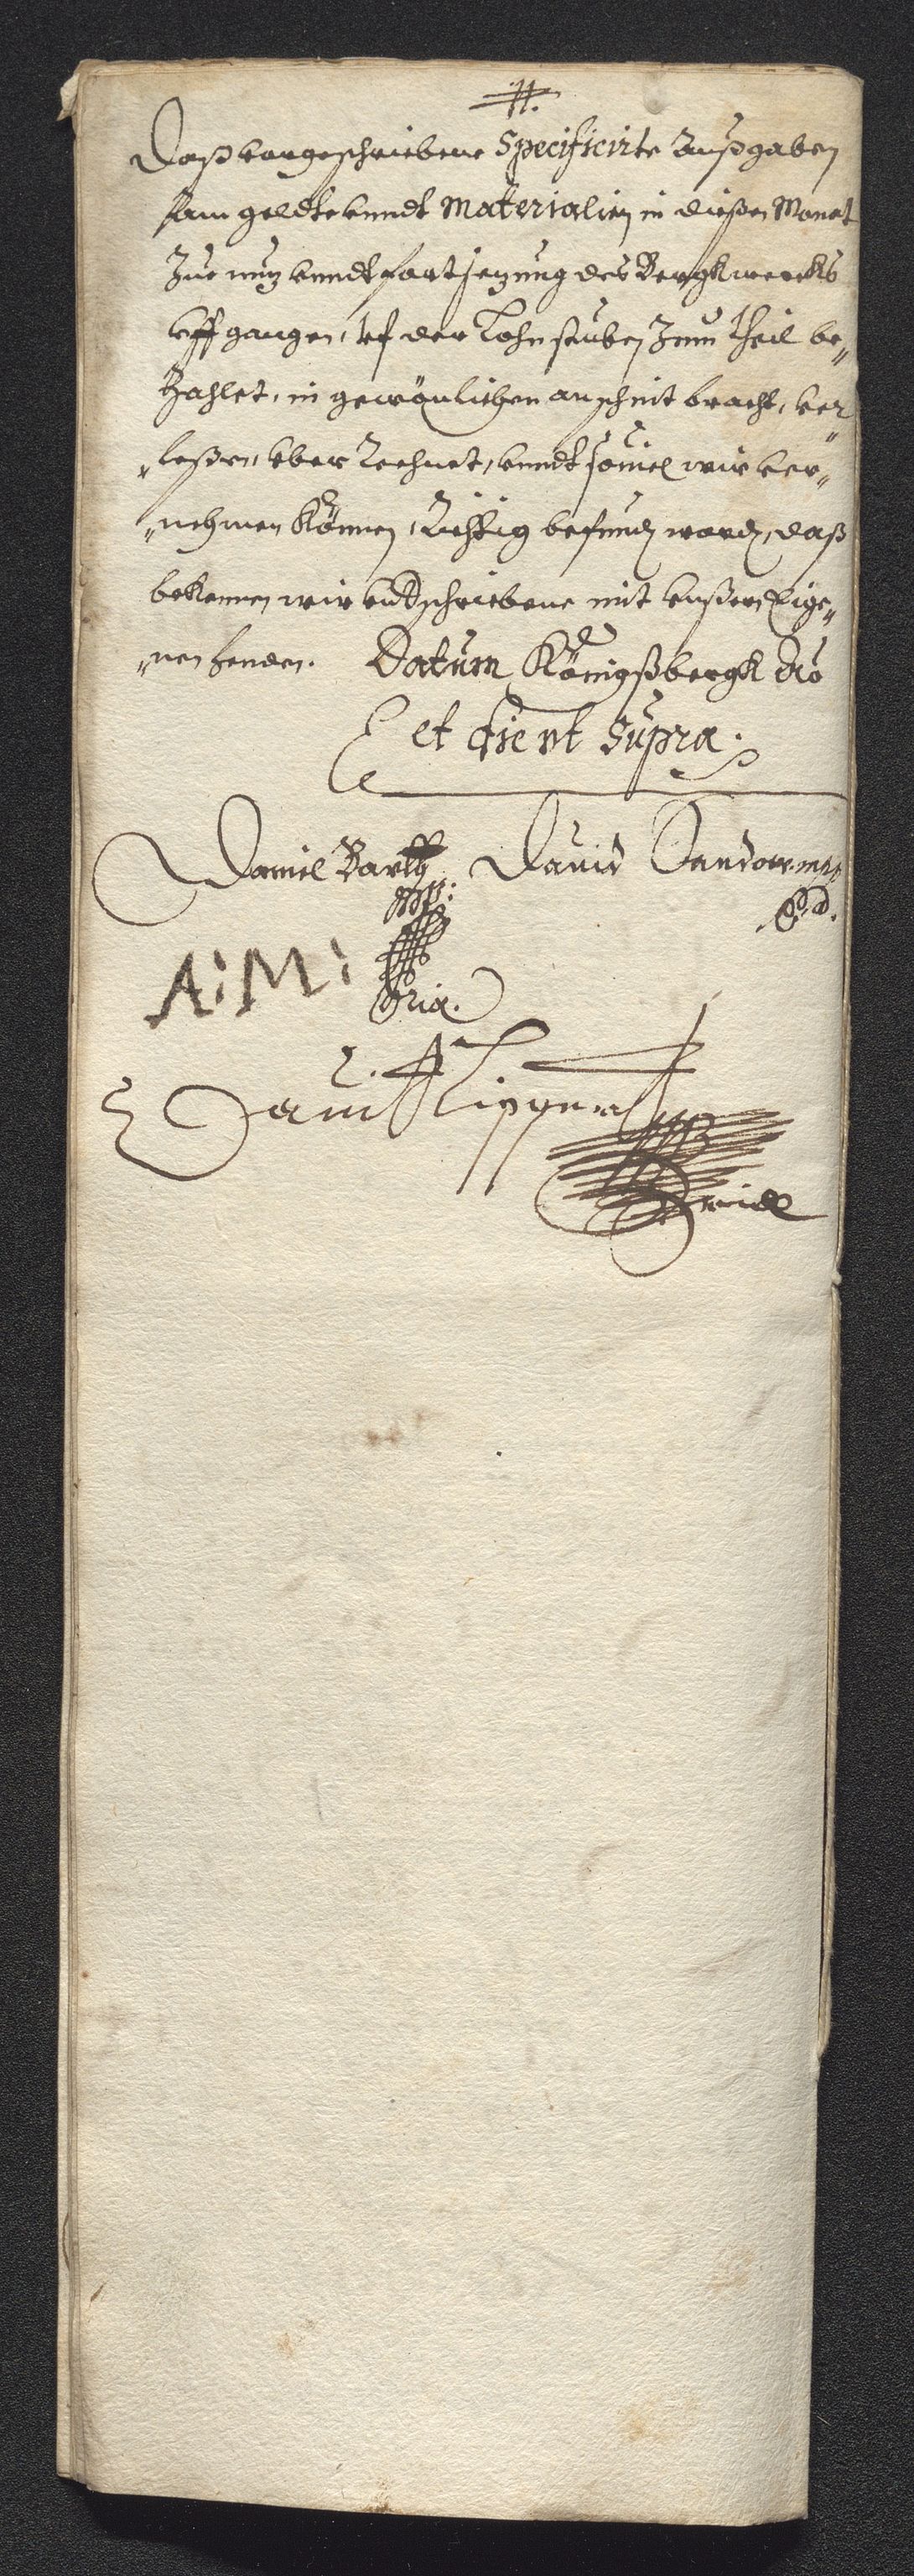 Daß vorgeschriebene Specificirte Außgaben
sam geldte vnndt Materialien in dießen Monat
Zue nuz vnndt fortsezung des Bergkwercks
vffgangen, vf der Lohnstuben Zum theil be„
Zahlet, in gewönlichen anschnit bracht, ver„
„leßen, vber Rechnet, vnndt souiel wir ver„
„nehmen können, Richtig befunden worden, daß
bekennen wir endtschriebene mit vnßern Eige„
„nen henden. Datum Königßbergk
et die vt Supra.
Daniel Barth David Sandow mpp
mp:
A: M:
ria.
Lippert